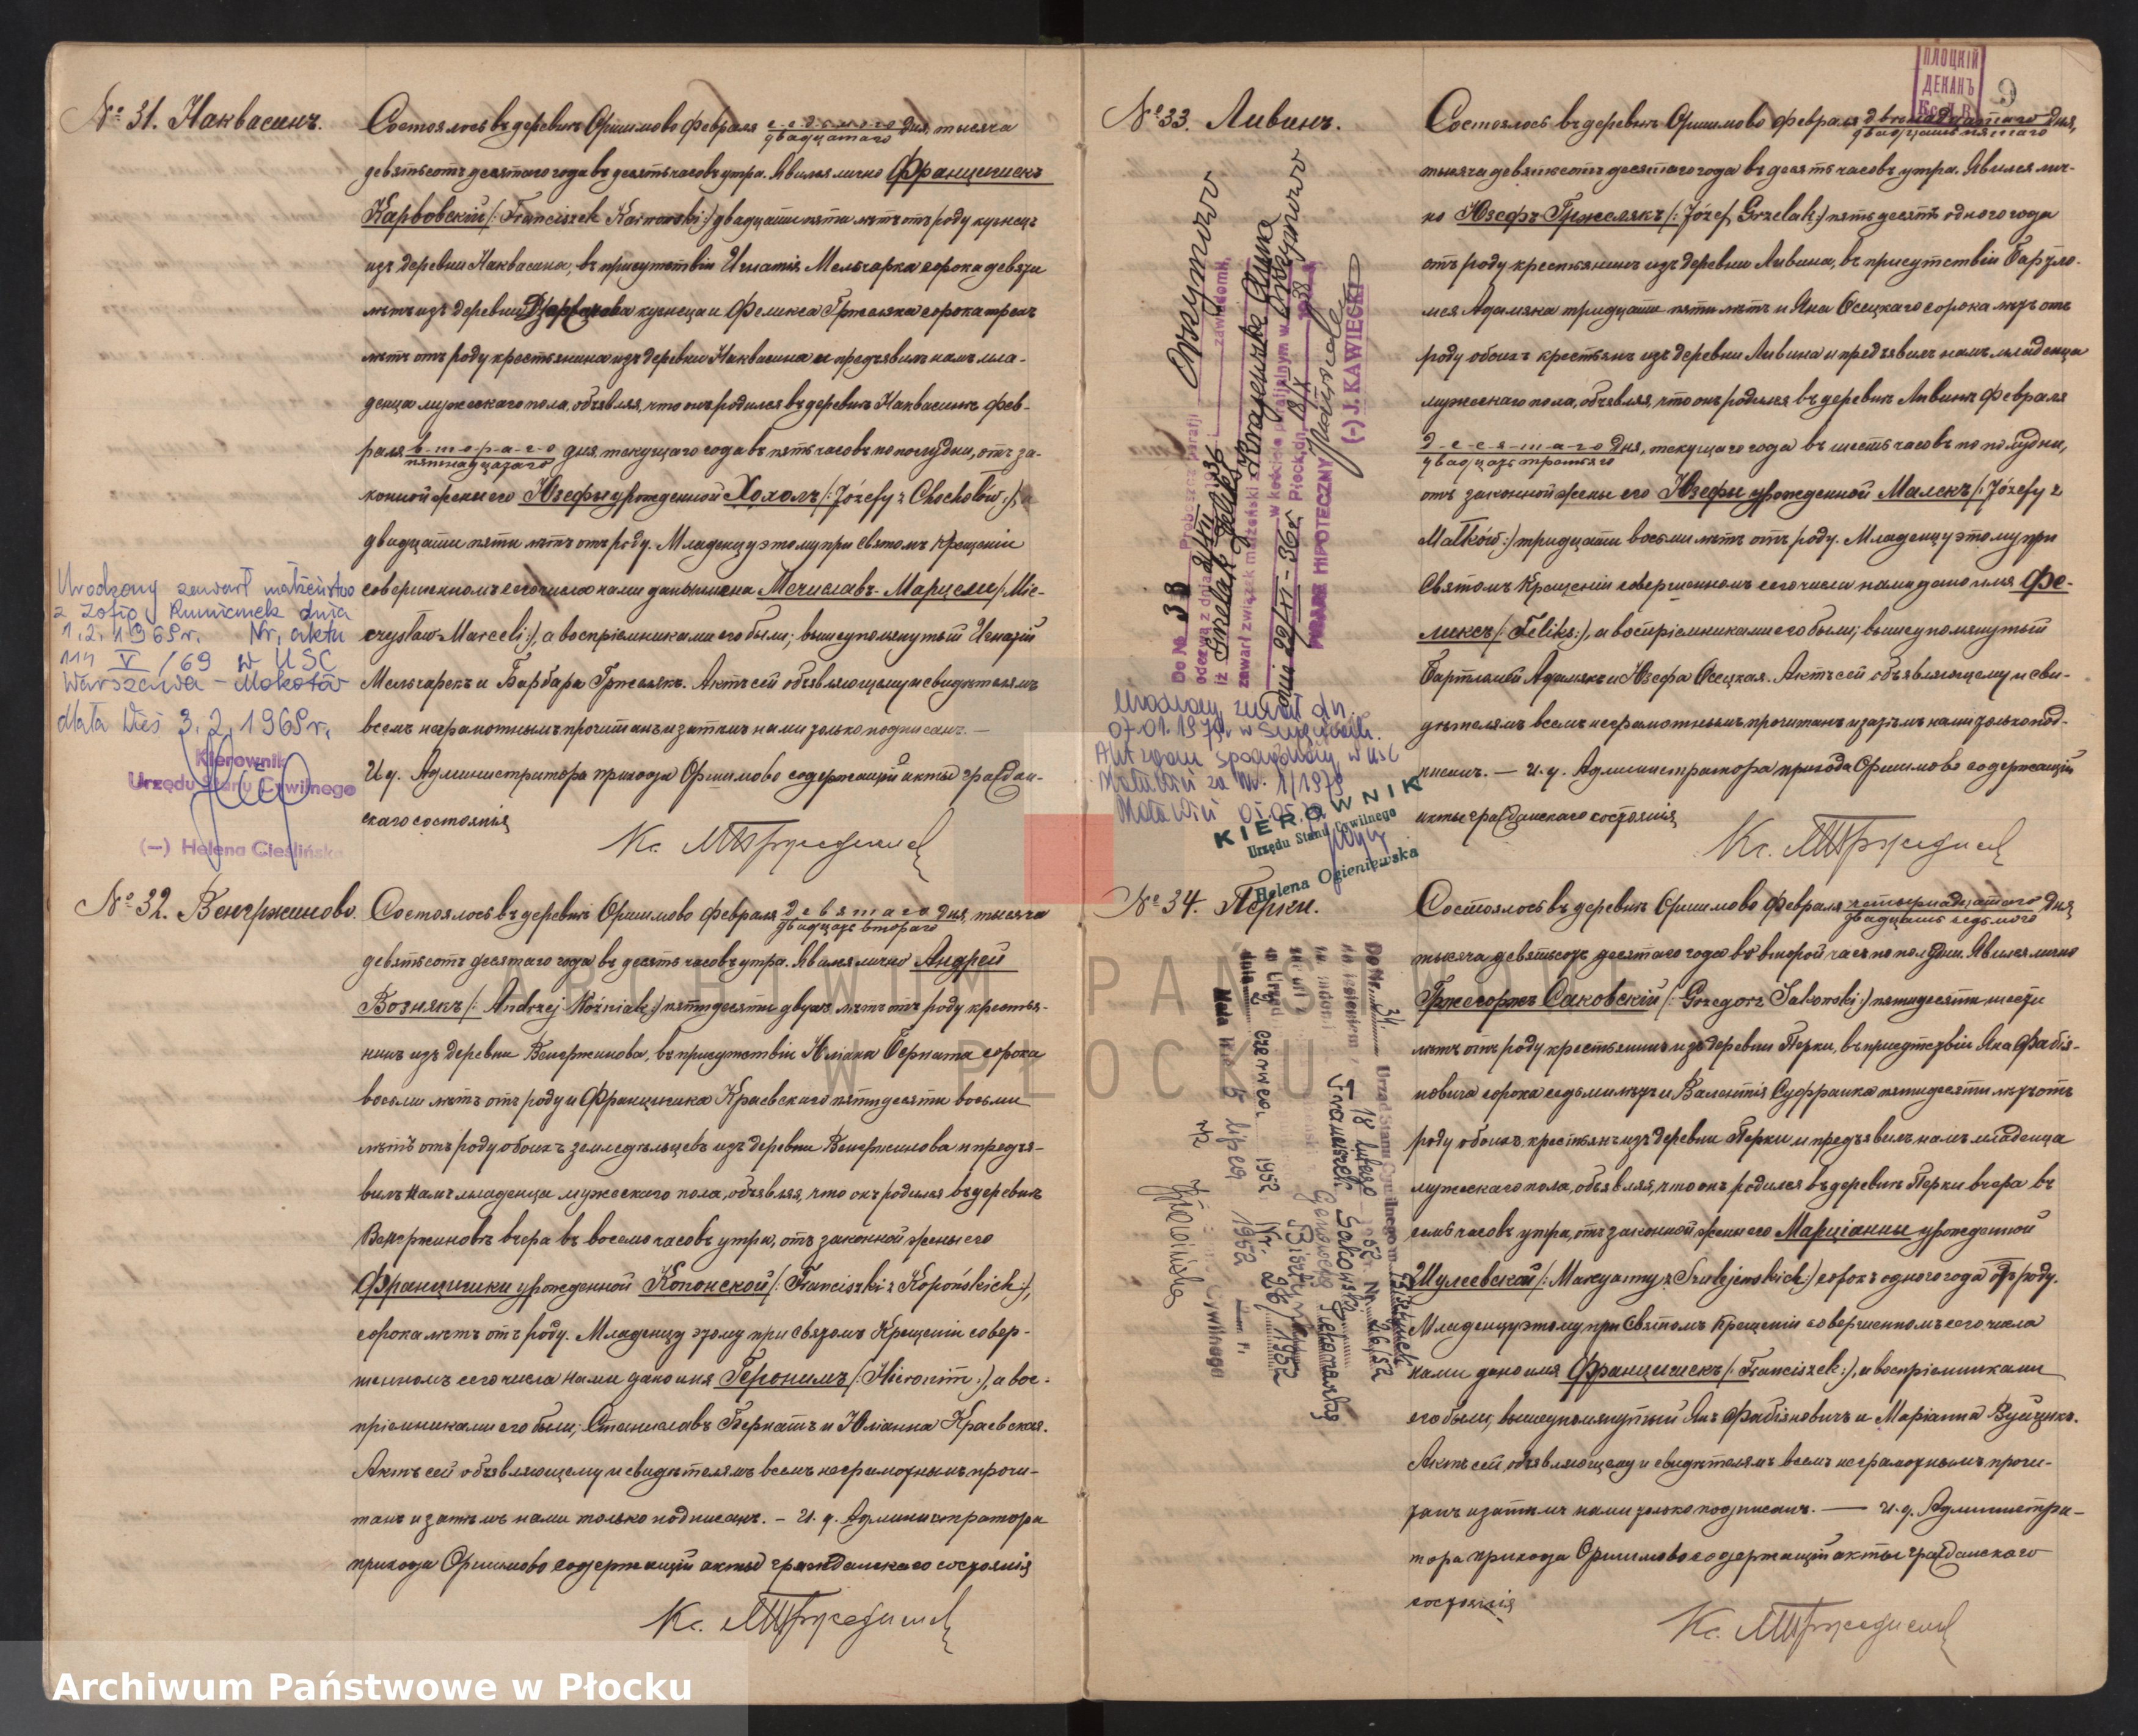 № 31. Наквасинъ.
Состоялось въ деревнѣ Оршимово Февраля седьмаго дня, тысяча
двадцатаго
девятьсотъ десятаго года въ десять часовъ утра. Явился лично Францишекъ
Карвовскій /: Franciszek Karwowski :/ двадцати пяти лѣтъ отъ роду кузнецъ
изъ деревни Наквасина, въ присутствіи Игнатія Мельчарка сорока девяти
лѣтъ изъ деревни кузнеца и Феликса Гржеляка сорока трехъ
лѣтъ отъ роду крестьянина изъ деревни Наквасина и предъявилъ намъ мла-
денца мужескаго пола, объявляя, что онъ родился въ деревнѣ Наквасинѣ Фев-
раля втораго дня текущаго года въ пять часовъ пополудни, отъ за-
пятнадцатаго
конной жены его Юзефы урожденной Хохолъ /: Józefy z Chochołów :/,
двадцати пяти лѣтъ отъ роду. Младенцу этому при Святомъ Крещеніи
совершенномъ сего числа нами дано имена Мечиславъ-Марцели /: Mie-
czysław-Marceli :/, а воспріемниками его были; вышеупомянутый Игнатій
Мельчарекъ и Барбара Гржелякъ. Актъ сей объявляющему и свидѣтелямъ
всемъ неграмотнымъ прочитанъ и затѣмъ нами только подписанъ. —
И. д. Администратора прихода Оршимово содержащій акты граждан-
скаго состоянія
Urodzony zawarł małżeństwo
z Zofią dnia
1.2.1969r. Nr. aktu
114 V /69 w USC
Warszawa - Mokotów
Mała Wieś 3.2.1969r.
Kierownik
Urzędu Stanu Cywilnego
(—) Helena Cieślińska
№ 32. Венгржиново.
Состоялось въ деревнѣ Оршимово Февраля девятаго дня, тысяча
двадцать втораго
девятьсотъ десятаго года въ десять часовъ утра. Явился лично Андрей
Вознякъ /: Andrzej Woźniak :/ пятидесяти двухъ лѣтъ отъ роду крестья-
нинъ изъ деревни Венгржинова, въ присутствіи Юліана Берната сорока
восьми лѣтъ отъ роду и Францишка Краевскаго пятидесяти восьми
лѣтъ отъ роду обоихъ земледѣльцевъ изъ деревни Венгржинова и предъя-
вилъ намъ младенца мужескаго пола, объявляя, что онъ родился въ деревнѣ
Венгржиновѣ вчера въ восемь часовъ утра, отъ законной жены его
Францишки урожденной Копонской /: Franciszki z Kopońskich :/,
сорока лѣтъ отъ роду. Младенцу этому при Святомъ Крещеніи совер-
шенномъ сего числа нами дано имя Геронимъ /: Hieronim :/, а вос-
пріемниками его были; Станиславъ Бернатъ и Юліанна Краевская.
Актъ сей объявляющему и свидѣтелямъ всемъ неграмотнымъ прочи-
танъ и затѣмъ нами только подписанъ. — И. д. Администратора
прихода Оршимово содержащій акты гражданскаго состоянія
ПЛОЦКІЙ
ДЕКАНЪ
9
№ 33. Ливинъ.
Состоялось въ деревнѣ Оршимово Февраля двѣнадцатаго дня,
двадцать пятаго
тысяча девятьсотъ десятаго года въ десять часовъ утра. Явился лич-
но Юзефъ Гржелякъ /: Józef Grzelak :/ пятьдесятъ одного года
отъ роду крестьянинъ изъ деревни Ливина, въ присутствіи Бартло-
мея Адамяка тридцати пяти лѣтъ и Яна Осецкаго сорока лѣтъ отъ
роду обоихъ крестьянъ изъ деревни Ливина и предъявилъ намъ младенца
мужескаго пола, объявляя, что онъ родился въ деревнѣ Ливинѣ Февраля
десятаго дня, текущаго года въ шесть часовъ по полудни,
двадцать третьяго
отъ законной жены его Юзефы урожденной Малекъ /: Józefy z
Małków :/ тридцати восьми лѣтъ отъ роду. Младенцу этому при
Святомъ Крещеніи совершенномъ сего числа нами дано имя Фе-
ликсъ /: Feliks :/, а воспріемниками его были; вышеупомянутый
Бартломей Адамякъ и Юзефа Осецкая. Актъ сей объявляющему и сви-
дѣтелямъ всемъ неграмотнымъ прочитанъ и затѣмъ нами только под-
писанъ. — И. д. Администратора прихода Оршимово содержащій
акты гражданскаго состоянія
Do № 33 Proboszcz parafji Orszymowo
odezwą z dnia zawiadomił,
iż Grzelak Feliks
zawarł związek małżeński z Krajewską Anną
w kościele parafjalnym w Orszymowo
dnia 22/XI - 36r Płock, dn.
PISARZ HIPOTECZNY
(-) J. KAWIECKI
Urodzony zmarł dn.
07.01.1979r. w
Akt zgonu sporządzony w USC
Mała Wieś za Nr. 1/1979
Mała Wieś
KIEROWNIK
Urzędu Stanu Cywilnego
Helena Ogieniewska
№ 34. Перки.
Состоялось въ деревнѣ Оршимово Февраля четырнадцатаго дня,
двадцать седьмого
тысяча девятьсотъ десятаго года во второй часъ по полудни. Явился лично
Гржегоржъ Саковскій /: Grzegorz Sakowski :/ пятидесяти шести
лѣтъ отъ роду крестьянинъ изъ деревни Перки, въ присутствіи Яна Фабія-
новича сорока седьми лѣтъ и Валентія пятидесяти лѣтъ отъ
роду обоихъ крестьянъ изъ деревни Перки и предъявилъ намъ младенца
мужескаго пола, объявляя, что онъ родился въ деревнѣ Перки вчера въ
семь часовъ утра, отъ законной жены его Марціанны урожденной
Шулеевской /: сорокъ одного года отъ роду.
Младенцу этому при Святомъ Крещеніи совершенномъ сего числа
нами дано имя Францишекъ /: Franciszek :/, а воспріемниками
его были; вышеупомянутый Янъ Фабіяновичъ и Маріанна Вуйцикъ.
Актъ сей объявляющему и свидѣтелямъ всемъ неграмотнымъ прочи-
танъ и затѣмъ нами только подписанъ. — И. д. Администра-
тора прихода Оршимово содержащій акты гражданскаго
состоянія
Do Nr. 34 Urząd Stanu Cywilnego
18 lutego 1952 Nr. 26/52
Franciszek Sakowski
czerwca 1952 Nr. 26/1952
Mała Wieś 5 lipca 1952 r.
ARCHIWUM PAŃSTWOWE
W PŁOCKU
Archiwum Państwowe w Płocku